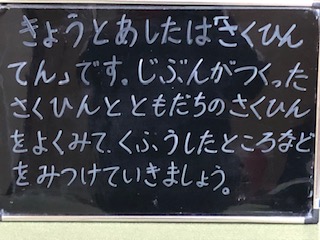 きょうとあしたは「さくひん
てん」です。じぶんがつくった
さくひんとともだちのさくひん
をよくみて、くふうしたところなど
をみつけていきましょう。